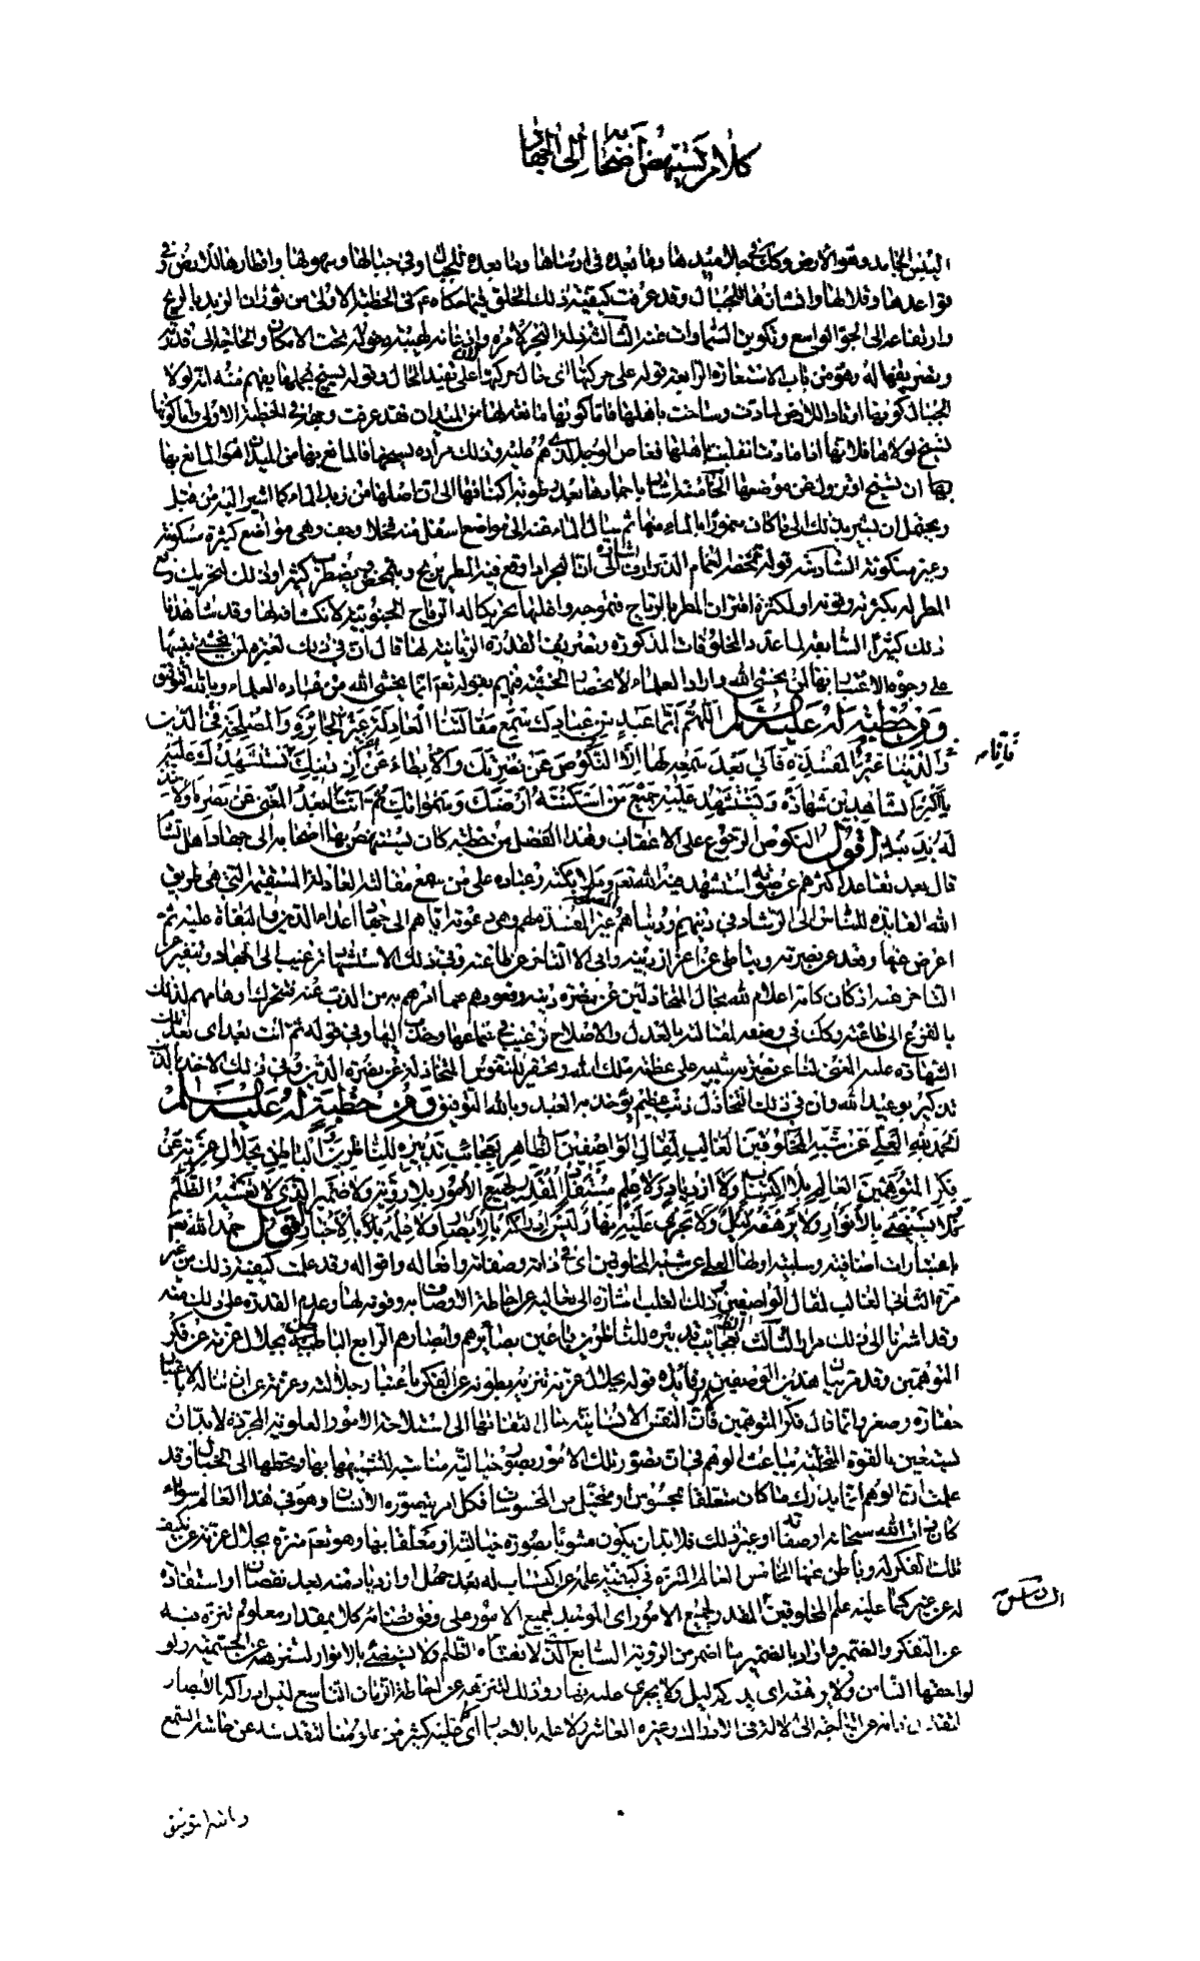 كلام يستنهض اصحابه الى الجهاد
اليبس الجامد وهو الارض وكك في جلاميدها وما بعده في ارساها وما بعده للجبال وفي جبالها وسهولها واقطارها
قواعدها وقلالها وانشازها للجبال وقد عرفت كيفية ذلك الخلق فيما حكاه عم في الخطبة الاولى من ثوران الزبد بالريح
وارتفاعه الى الجو الواسع وتكوين السماوات عنه الثالثة ذلة البحر لامره واذعانه لهيبته دخوله تحت الامكان والحاجة الى قدرته
وتصريفها له وهو من باب الاستعارة الرابعة قوله على حركتها اى حال حركتها على تفيد الحال وقوله تسيخ بحملها يفهم منه انه لولا
الجبال كونها اوتادا للارض لمادت وساخت باهلها فاما كونها مانعة لها من الميدان فقد عرفت وجهه في الخطبة الاولى واما كونها
تسيخ لولاها فلانها اذا مادت انقلبت باهلها فغاص الوجه الذي هم عليه وذلك مراده بسيخها فالمانع بها من الميدان هو المانع بها
بها ان تسيخ او تزول عن موضعها الخامسة
ويحتمل ان يشير بذلك الى ما كان مغمورا بالماء منها ثم سال الماء عنه الى مواضع اسفل منه فخلا وجف وهي مواضع كثيرة مسكونة
وغير مسكونة السادسة قوله تمخضه الغمام الذوارف اشارة الى ان البحر اذا وقع فيه المطر يرتج ويتمخض ويضطرب كثيرا وذلك لتحريك وقع
المطر له بكثرته وقوته او لكثرة اقتران المطر بالرياح فتموجه واغلبها تحريكا له الرياح الجنوبية لانكشافه لها وقد شاهدنا
ذلك كثيرا السابعة لما عدد المخلوقات المذكورة وتصريف القدرة الربانية لها قال ان في ذلك لعبرة لمن يخشى تنبيها
على وجوه الاعتبار بها لمن يخشى الله واراد العلماء لانحصار الخشية فيهم بقوله تعم انما يخشى الله من عباده العلماء وبالله التوفيق
ومن خطبة له عليه السلام اللهم ايما عبد من عبادك سمع مقالتنا العادلة غير الجائرة والمصلحة في الدين
والدنيا غير المفسدة فابى بعد سمعه لها الا النكوص عن نصرتك والابطاء عن اعزاز دينك فانا نستشهدك عليه
باكبر الشاهدين شهادة ونستشهد عليه جميع من اسكنته ارضك وسمواتك ثم انت بعد المغني عن نصره والاخذ
له بذنبه اقول النكوص الرجوع على الاعقاب وهذا الفصل من خطبة كان يستنهض بها اصحابه الى جهاد اهل الشام
قاله بعد تقاعد اكثرهم عن صوته استشهد فيه الله تعم وملائكته وعباده على من سمع مقالته العادلة المستقيمة التي هي طريق
الله القائدة للناس الى الرشاد في دينهم ودنياهم المصلحة غير المفسدة لهم وهي دعوته اياهم الى جهاد اعداء الدين والبغاة عليه ثم
اعرض عنها وقعد عن نصرته وتباطى عن اعزاز دينه وابى الا التاخر عن طاعته وفي ذلك الاستشهاد ترغيب الى الجهاد وتنفير عن
التاخر عنه اذ كان كانه اعلام لله بحال المتخاذلين عن نصرة دينه وقعودهم عما امرهم به من الذب عنه فتتحرك اوهامهم لذلك
بالفزع الى طاعته وكك في وصفه لمقالته بالعدل والاصلاح ترغيب في سماعها وجذب اليها وفي قوله ثم انت بعد اى بعد تلك
الشهادة عليه المغني لنا عن نصرته تنبيه على عظمة ملك الله وتحقير للنفوس المتخاذلة عن نصرة الدين وفي ذلك الاخذ بالذنب
تذكير بوعيد الله وان في ذلك التخاذل ذنب عظيم يؤخذ به العبد وبالله التوفيق ومن خطبة له عليه السلام
الحمد لله العلي عن شبه المخلوقين الغالب لمقال الواصفين الظاهر بعجائب تدبيره للناظرين الباطن بجلال عزته عن
فكر المتوهمين العالم بلا اكتساب ولا ازدياد ولا علم مستفاد المقدر لجميع الامور بلا روية ولا ضمير الذي لا تغشاه الظلم
ولا يستضئ بالانوار ولا يرهقه ليل ولا يجري عليه نهار ليس ادراكه بالابصار ولا علمه بالاخبار اقول حمد الله تعم
باعتبارات اضافية وسلبية اولها العلي عن شبه المخلوقين اى في ذاته وصفاته وافعاله واقواله وقد علمت كيفية ذلك من غير
مرة الثاني الغالب لمقال الواصفين وذلك الغلب اشارة الى تعاليه عن احاطة الاوصاف به وفوته لها وعدم القدرة على ذلك منه
وقد اشرنا الى ذلك مرارا الثالث الظاهر بعجائب تدبيره للناظرين باعين بصائرهم وابصارهم الرابع الباطن بجلال عزته عن فكر
المتوهمين وقد مر بيان هذين الوصفين وفائدة قوله بجلال عزته تنزيه بطونه عن الفكر باعتبار جلالته وعزته عن ان تناله لا باعتبار
حقارة وصغر وانما قال فكر المتوهمين لان النفس الانسانية حال التفاتها الى استلاحة الامور العلوية المجردة لابد ان
تستعين بالقوة المتخيلة بباعث الوهم في ان تصور تلك الامور بصور خيالية مناسبة لتشبيهها بها وتحطها الى الخيال وقد
علمت ان الوهم انما يدرك ما كان متعلقا بمحسوس او متخيل من المحسوسات فكل امر يتصوره الانسان وهو في هذا العالم سواء
كان ذات الله سبحانه او صفاته او غير ذلك فلابد ان يكون مشوبا بصورة خيالية او معلقا بها وهو تعم منزه بجلال عزته عن تكييف
تلك الفكر له وباطن عنها الخامس العالم المنزه في كيفية علمه عن اكتساب له بعد جهل او ازدياد منه بعد نقصان او استفادة
له عن غير كما عليه علم المخلوقين المقدر لجميع الامور اى الموجد لجميع الامور على وفق قضائه كلا بمقدار معلوم تنزه فيه
عن التفكر والضمير واراد بالضمير ما اضمر من الروية السابع الذي لا تغشاه الظلم ولا يستضئ بالانوار لتنزهه عن الجسمية و
لواحقها الثامن ولا يرهقه اى يدركه ليل ولا يجري عليه نهار وذلك لتنزهه عن احاطة الزمان التاسع ليس ادراكه بالابصار
لتقدس ذاته عن الحاجة الى الالة في الادراك وغيره العاشر ولا علمه بالاخبار اى كما عليه كثير من علومنا لتقدسه عن حاسة السمع
السادس
وبالله التوفيق